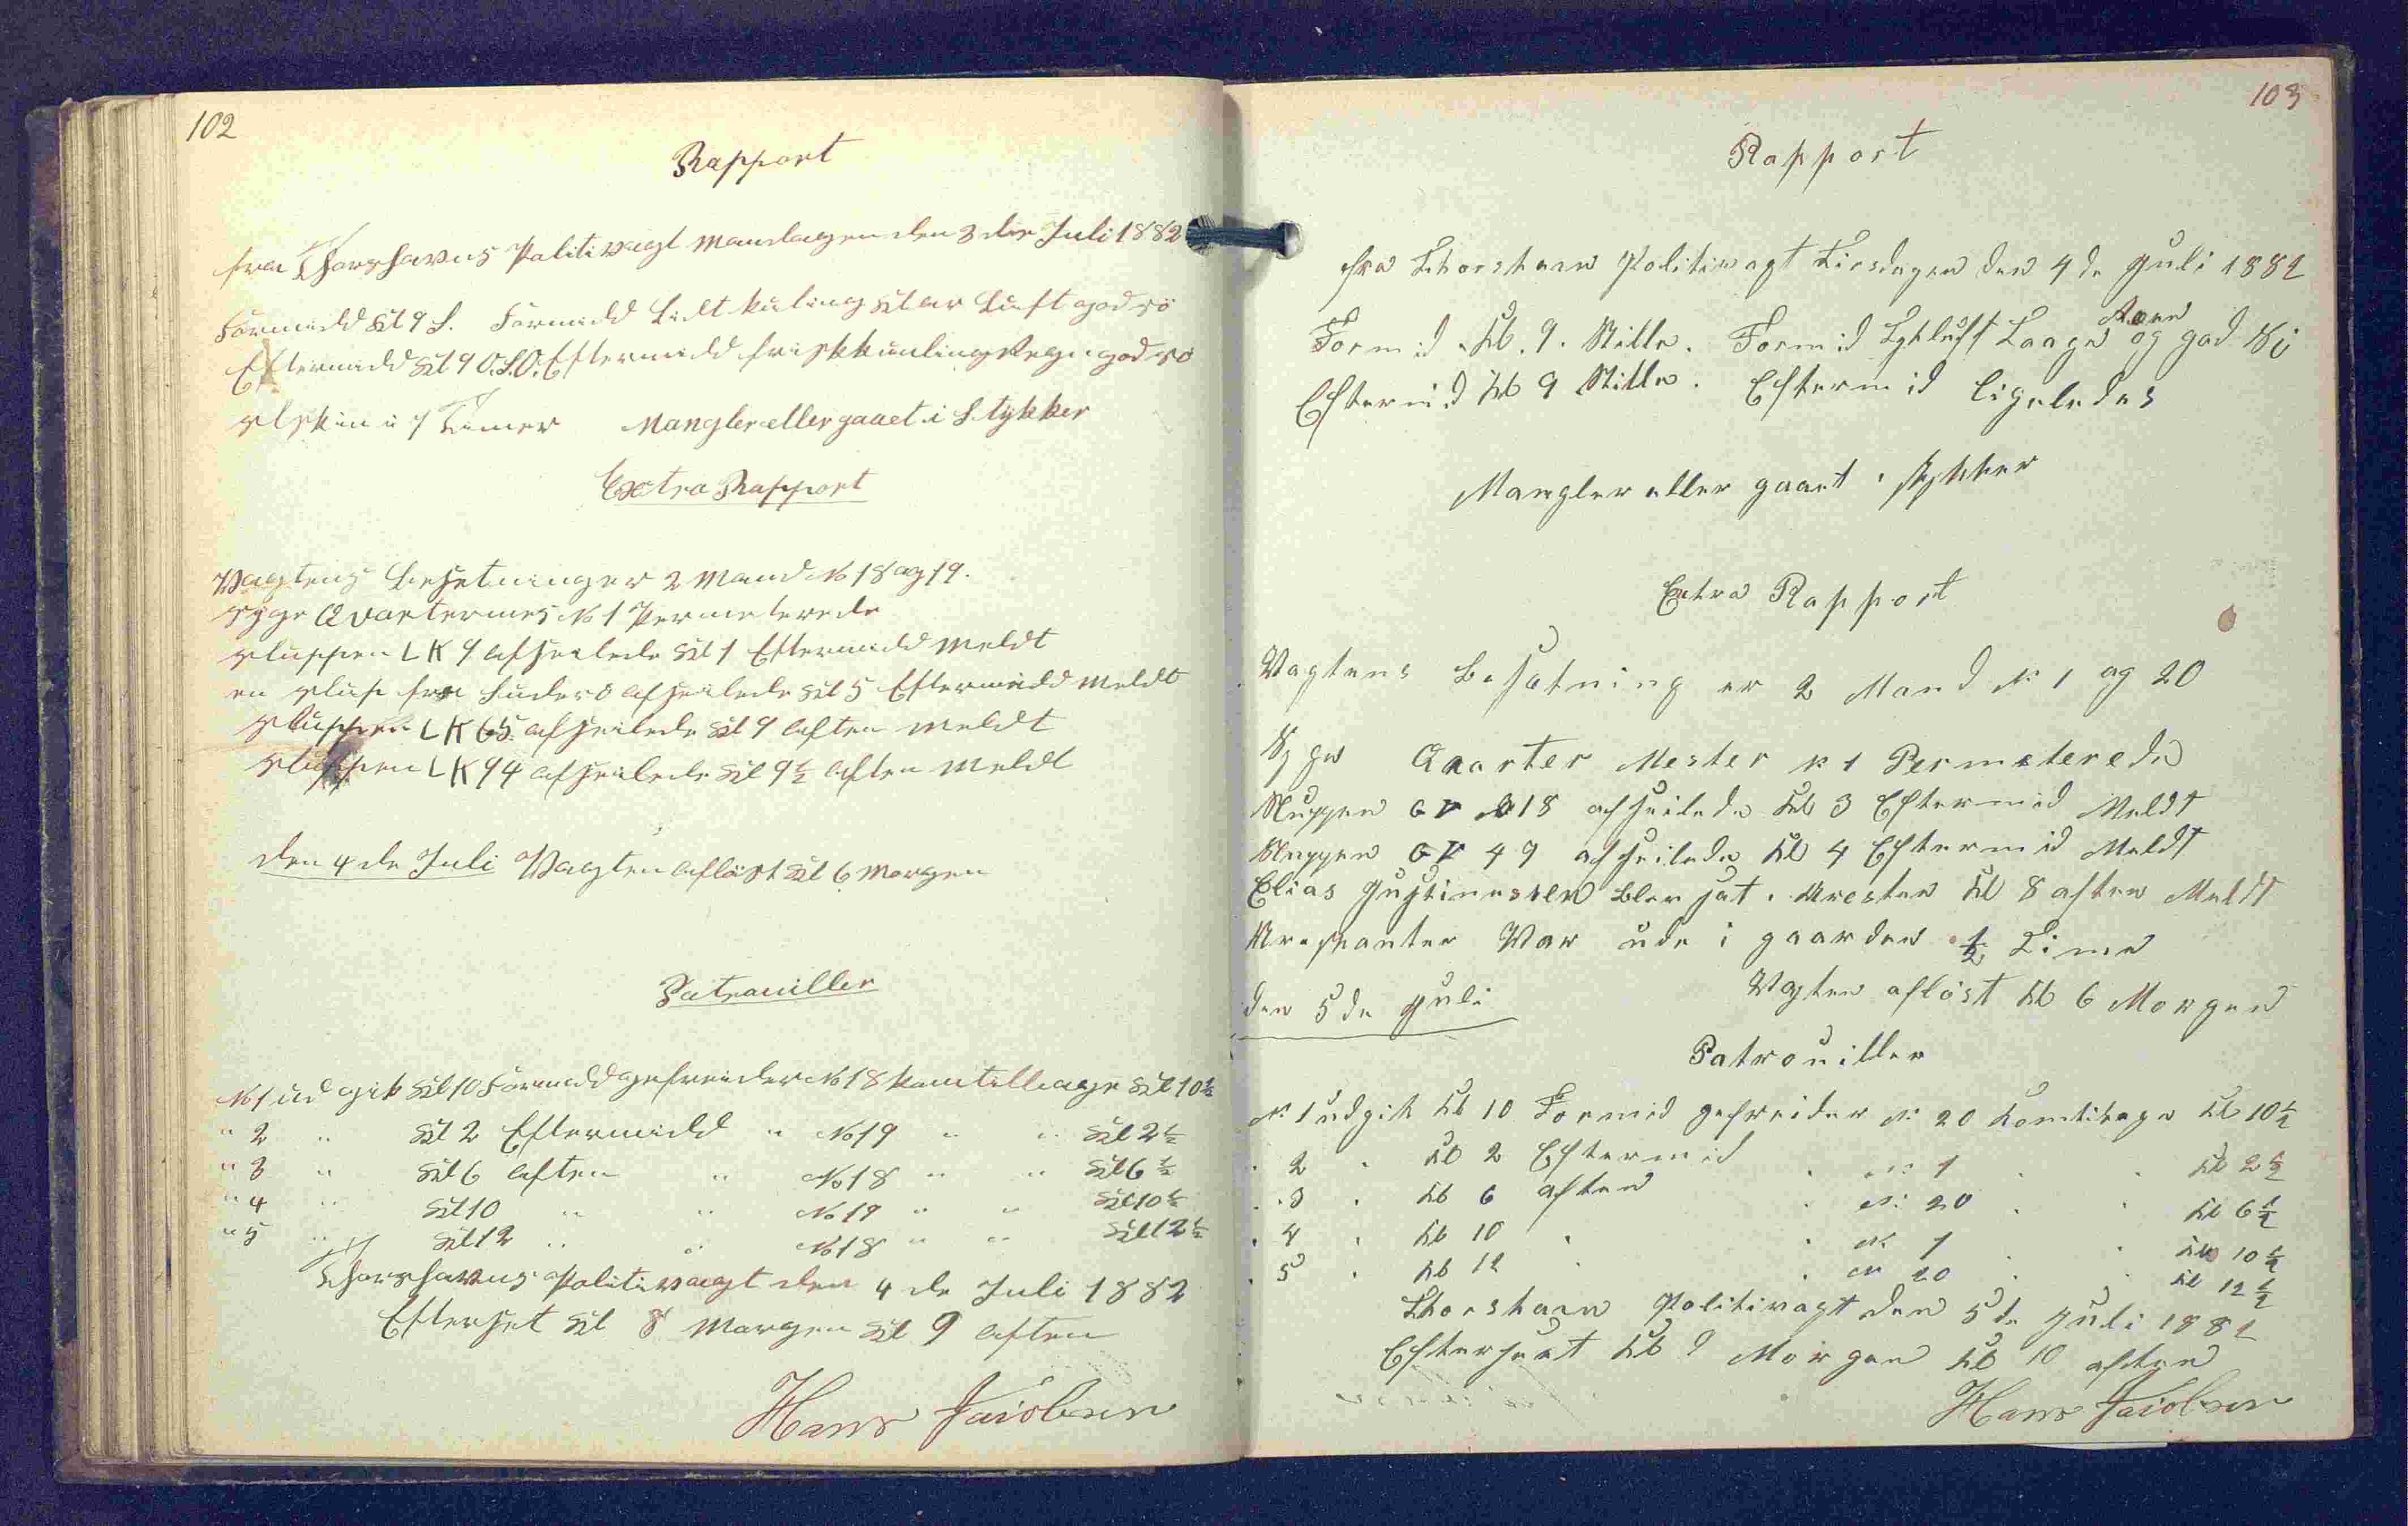 102
Rapport
fra Thorshavns Politivagt Mandagen den 3die Juli 1882
Formidd Kl 9 S. Formidd Lidt kuling klar Luft god sö
Eftermidd Kl 9 O.S.O. Eftermidd frisk kuling Regn god sö
Solskin i 7 Timer Mangler eller gaaet i Stykker
Extra Rapport
Vagtens besetning er 2 Mand No 18 og 19.
syge Qvartermes No 1 Permeterede
sluppen LK 9 afseilede Kl 1 Eftermidd meldt
en slup fra Suderö afseilede Kl 5 Eftermidd meldt
sluppen LK 65 afseilede Kl 9 aften meldt
sluppen LK 94 afseilede Kl 9½ aften meldt
den 4de Juli Vagten aflöst Kl 6 Morgen
Patrouiller
No 1 udgik Kl 10 Formidd gefreider No 18 kom tilbage Kl 10½
" 2 " Kl 2 Eftermidd " No 19 " " Kl 2½
" 3 " Kl 6 aften " No 18 " " Kl 6½
" 4 " Kl 10 " " No 19 " " Kl 10½
" 5 " Kl 12 " " No 18 " " Kl 12½
Thorshavns Politivagt den 4de Juli 1882
Efterset Kl 8 Morgen Kl 9 aften
Hans Jacobsen
103
Rapport
fra Thorshavn Politivagt Tirsdagen den 4de Juli 1882
Formid. Kl. 9. Stille. Formid Tykluft Taage Regn og god Sö
Eftermid Kl 9 Stille. Eftermid ligeledes
Mangler eller gaaet i stykker
Extra Rapport
Vagtens Besætning er 2 Mand No 1 og 20
Syge Qvarter Mester No 1 Permeterede
Sluppen 18 afseilede Kl 3 Eftermid Meldt
Sluppen 49 afseilede Kl 4 Eftermid Meldt
Elias Justinessen blev sat i Aresten Kl 8 aften Meldt
Arestanter Var ude i gaarden ½ Time
den 5de Juli Vagten aflöst Kl 6 Morgen
Patrouiller
No 1 udgik Kl 10 Formid gefreider No 20 kom tilbage Kl 10½
" 2 " Kl 2 Eftermid " No 1 " " Kl 2½
" 3 " Kl 6 aften " No 20 " " Kl 6½
" 4 " Kl 10 " " No 1 " " Kl 10½
" 5 " Kl 12 " " No 20 " " Kl 12½
Thorshavn Politivagt den 5te Juli 1882
Efterseet Kl 9 Morgen Kl 10 aften
Hans Jacobsen